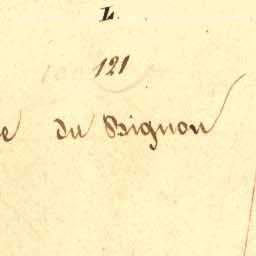 L.
121
e du Bignon